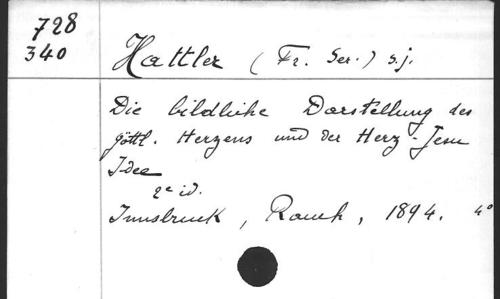 728
340
Hattler (Fr. Ser.) s.j.
Die bildliche Darstellung des
göttl. Herzens und der Herz-Jesu
Idee
2e id.
Innsbruck, Rauch, 1894. 4°